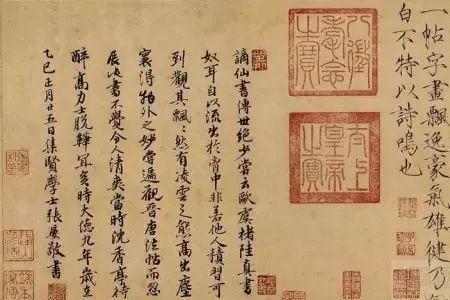 一帖字畫飄逸豪氣雄健乃
白不特以詩鳴也
八徵耄念之寶
太上皇帝之寶
謫仙書傳世絕少嘗云歐虞褚陸真書
奴耳自以流出於胷中非若他人積習可
到觀其飄飄然有凌雲之態高出塵
寰得物外之妙嘗遍觀晉唐法帖而忽
展此書不覺令人清爽當時沈香亭待
醉高力士脫靴宜矣時大德九年歲在
乙巳正月廿五日集賢學士張晏敬書